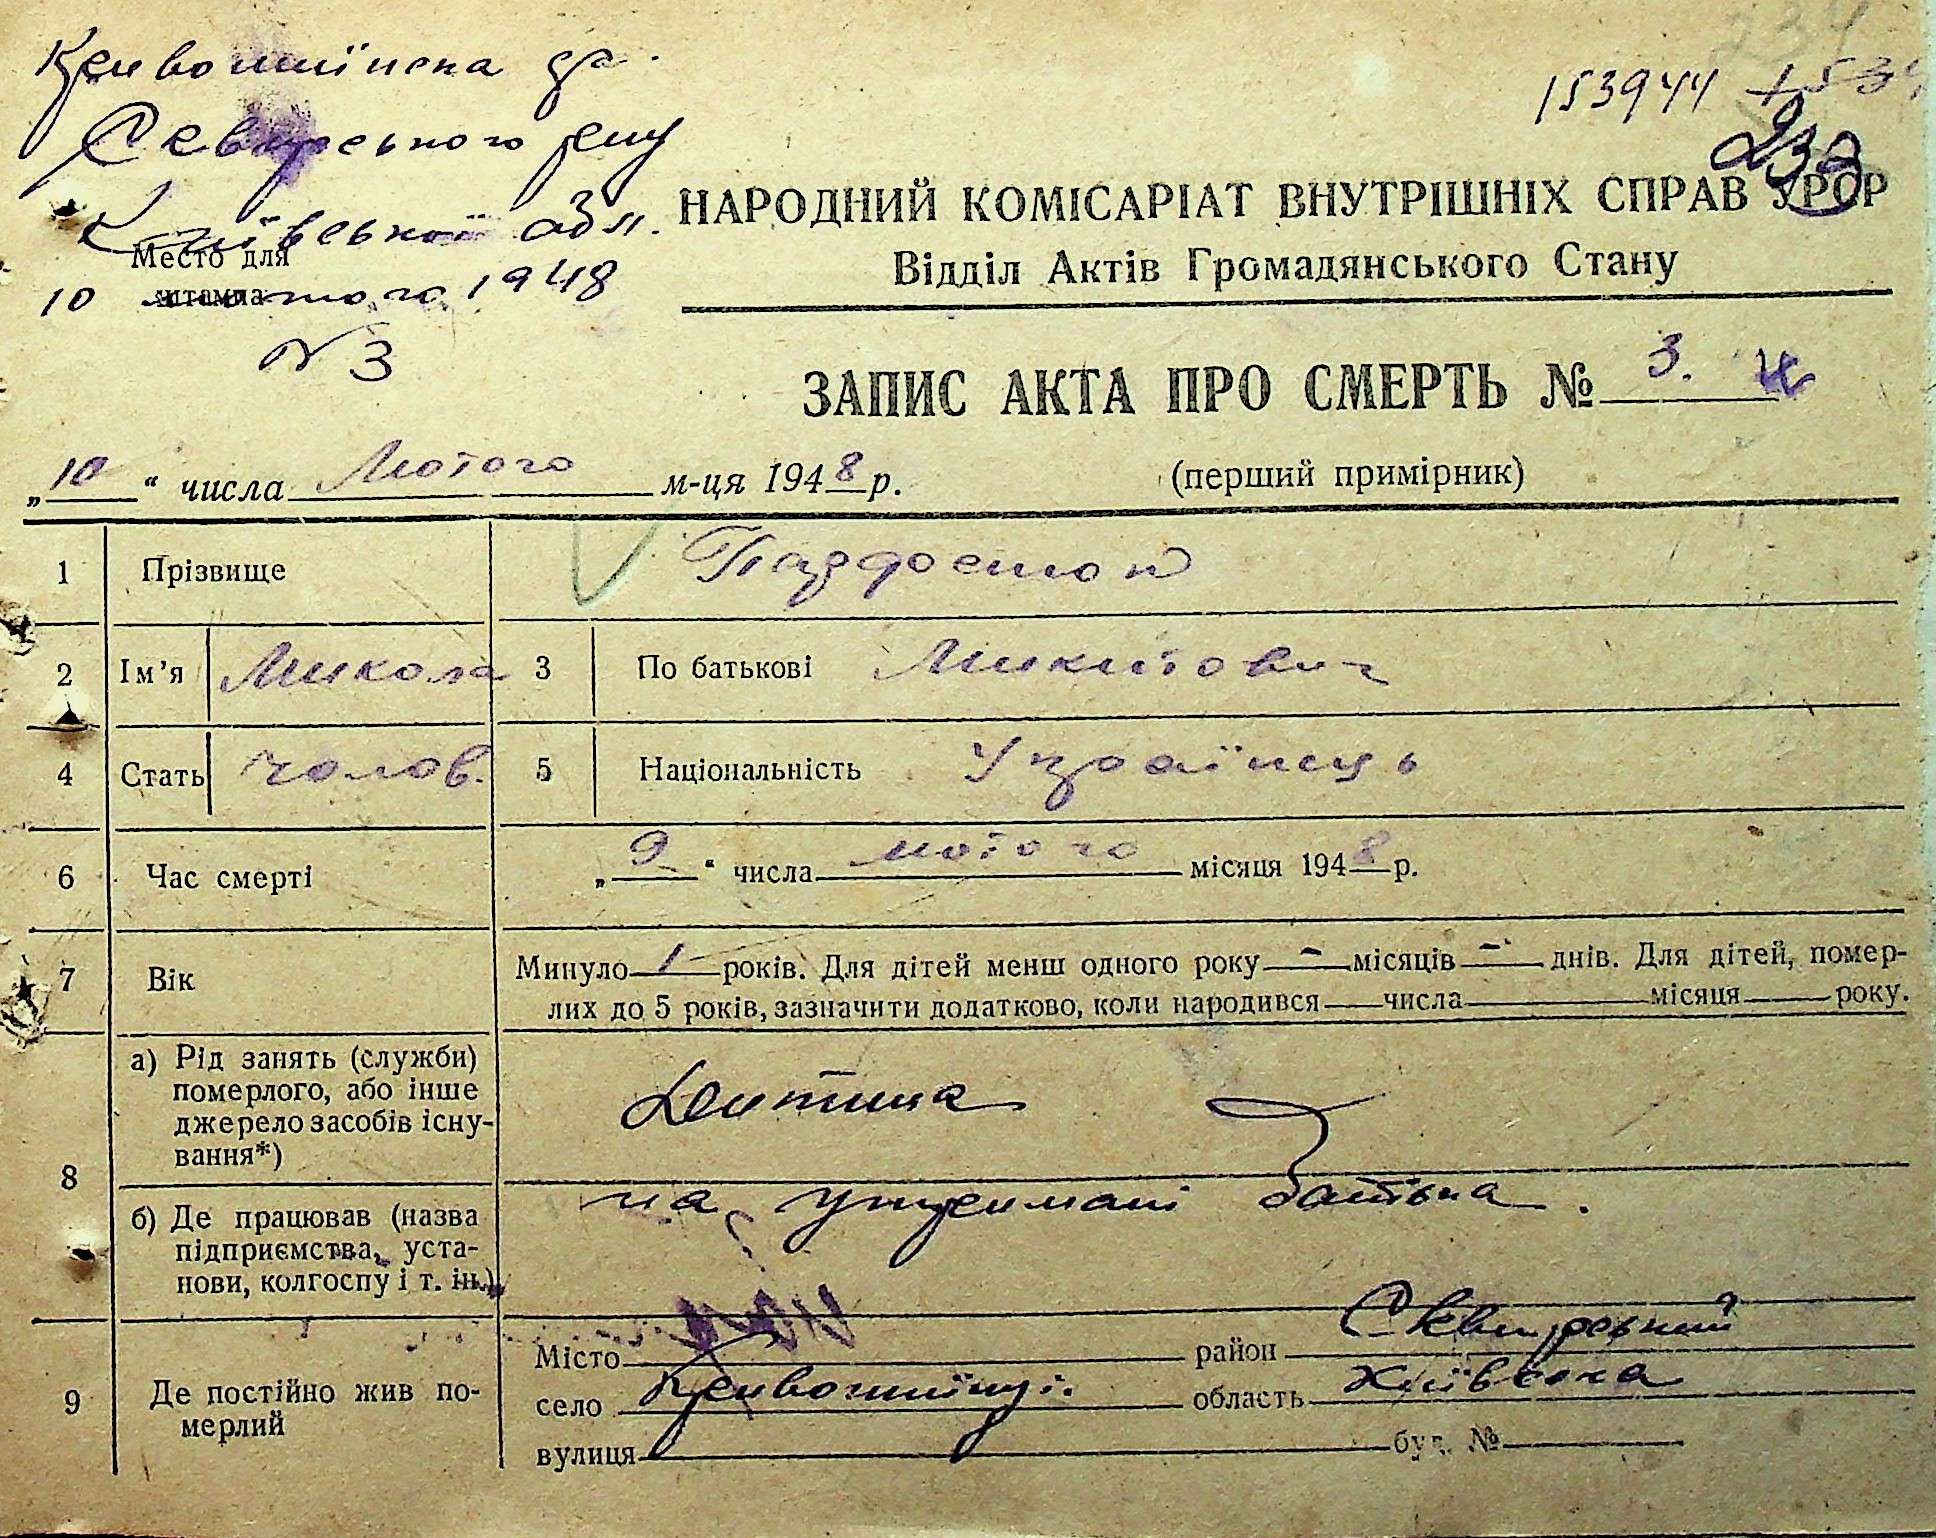 Кривошиїнска с/р.
Сквирського р-ну
Київської обл.
Место для
штампа
10 лютого 1948
N 3
153944
233
НАРОДНИЙ КОМІСАРІАТ ВНУТРІШНІХ СПРАВ УРСР
Відділ Актів Громадянського Стану
ЗАПИС АКТА ПРО СМЕРТЬ № 3.
„10“ числа Лютого м-ця 1948 р. (перший примірник)
1 Прізвище Парфенюк
2 Ім'я Микола 3 По батькові Микитович
4 Стать чолов. 5 Національність Українець
6 Час смерті „9“ числа лютого місяця 1948 р.
7 Вік Минуло 1 років. Для дітей менш одного року - місяців - днів. Для дітей, помер-
лих до 5 років, зазначити додатково, коли народився числа місяця року.
8 а) Рід занять (служби)
померлого, або інше
джерело засобів існу-
вання*)
Дитина
б) Де працював (назва
підприємства, уста-
нови, колгоспу і т. ін.)
на утримані батька.
9 Де постійно жив по-
мерлий
Місто район Сквирський
село Кривошиїнці. область Київська
вулиця буд. №